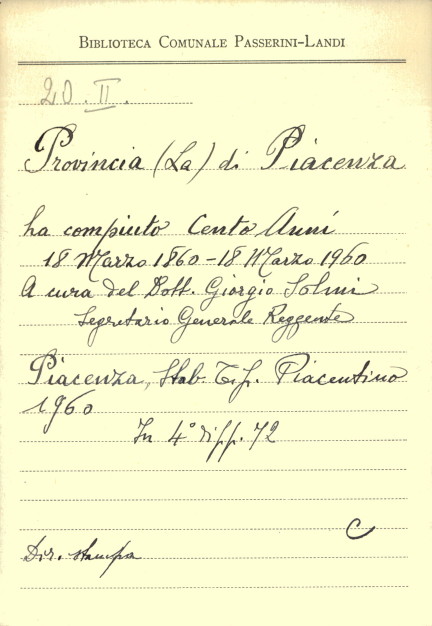 BIBLIOTECA COMUNALE PASSERINI-LANDI
20.II.
Provincia (La) di Piacenza
ha compiuto Cento Anni
18 Marzo 1860 - 18 Marzo 1960
A cura del Dott. Giorgio Solmi
Segretario Generale Reggente
Piacenza, Stab. Tip. Piacentino
1960
In 4° di pp. 72
C
Dir. stampa